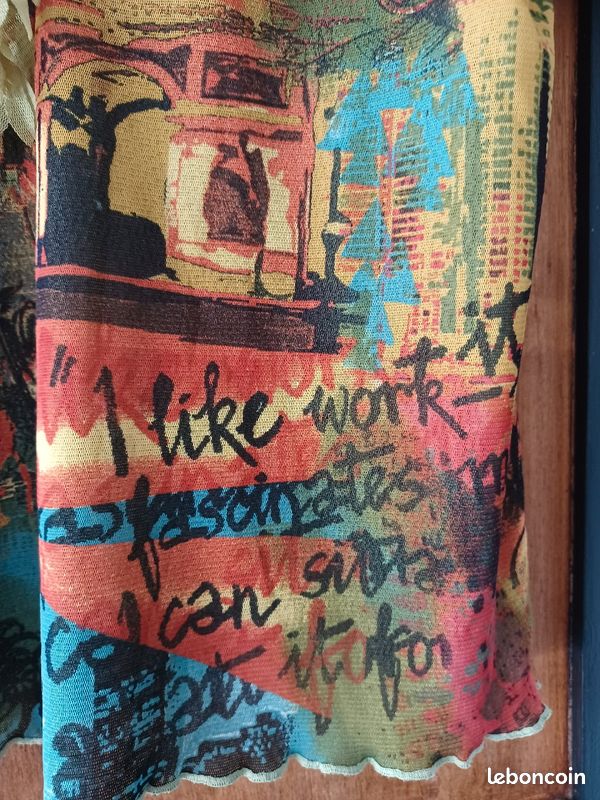 "I like work - it
fascinates m
I can sit a
at it for
leboncoin